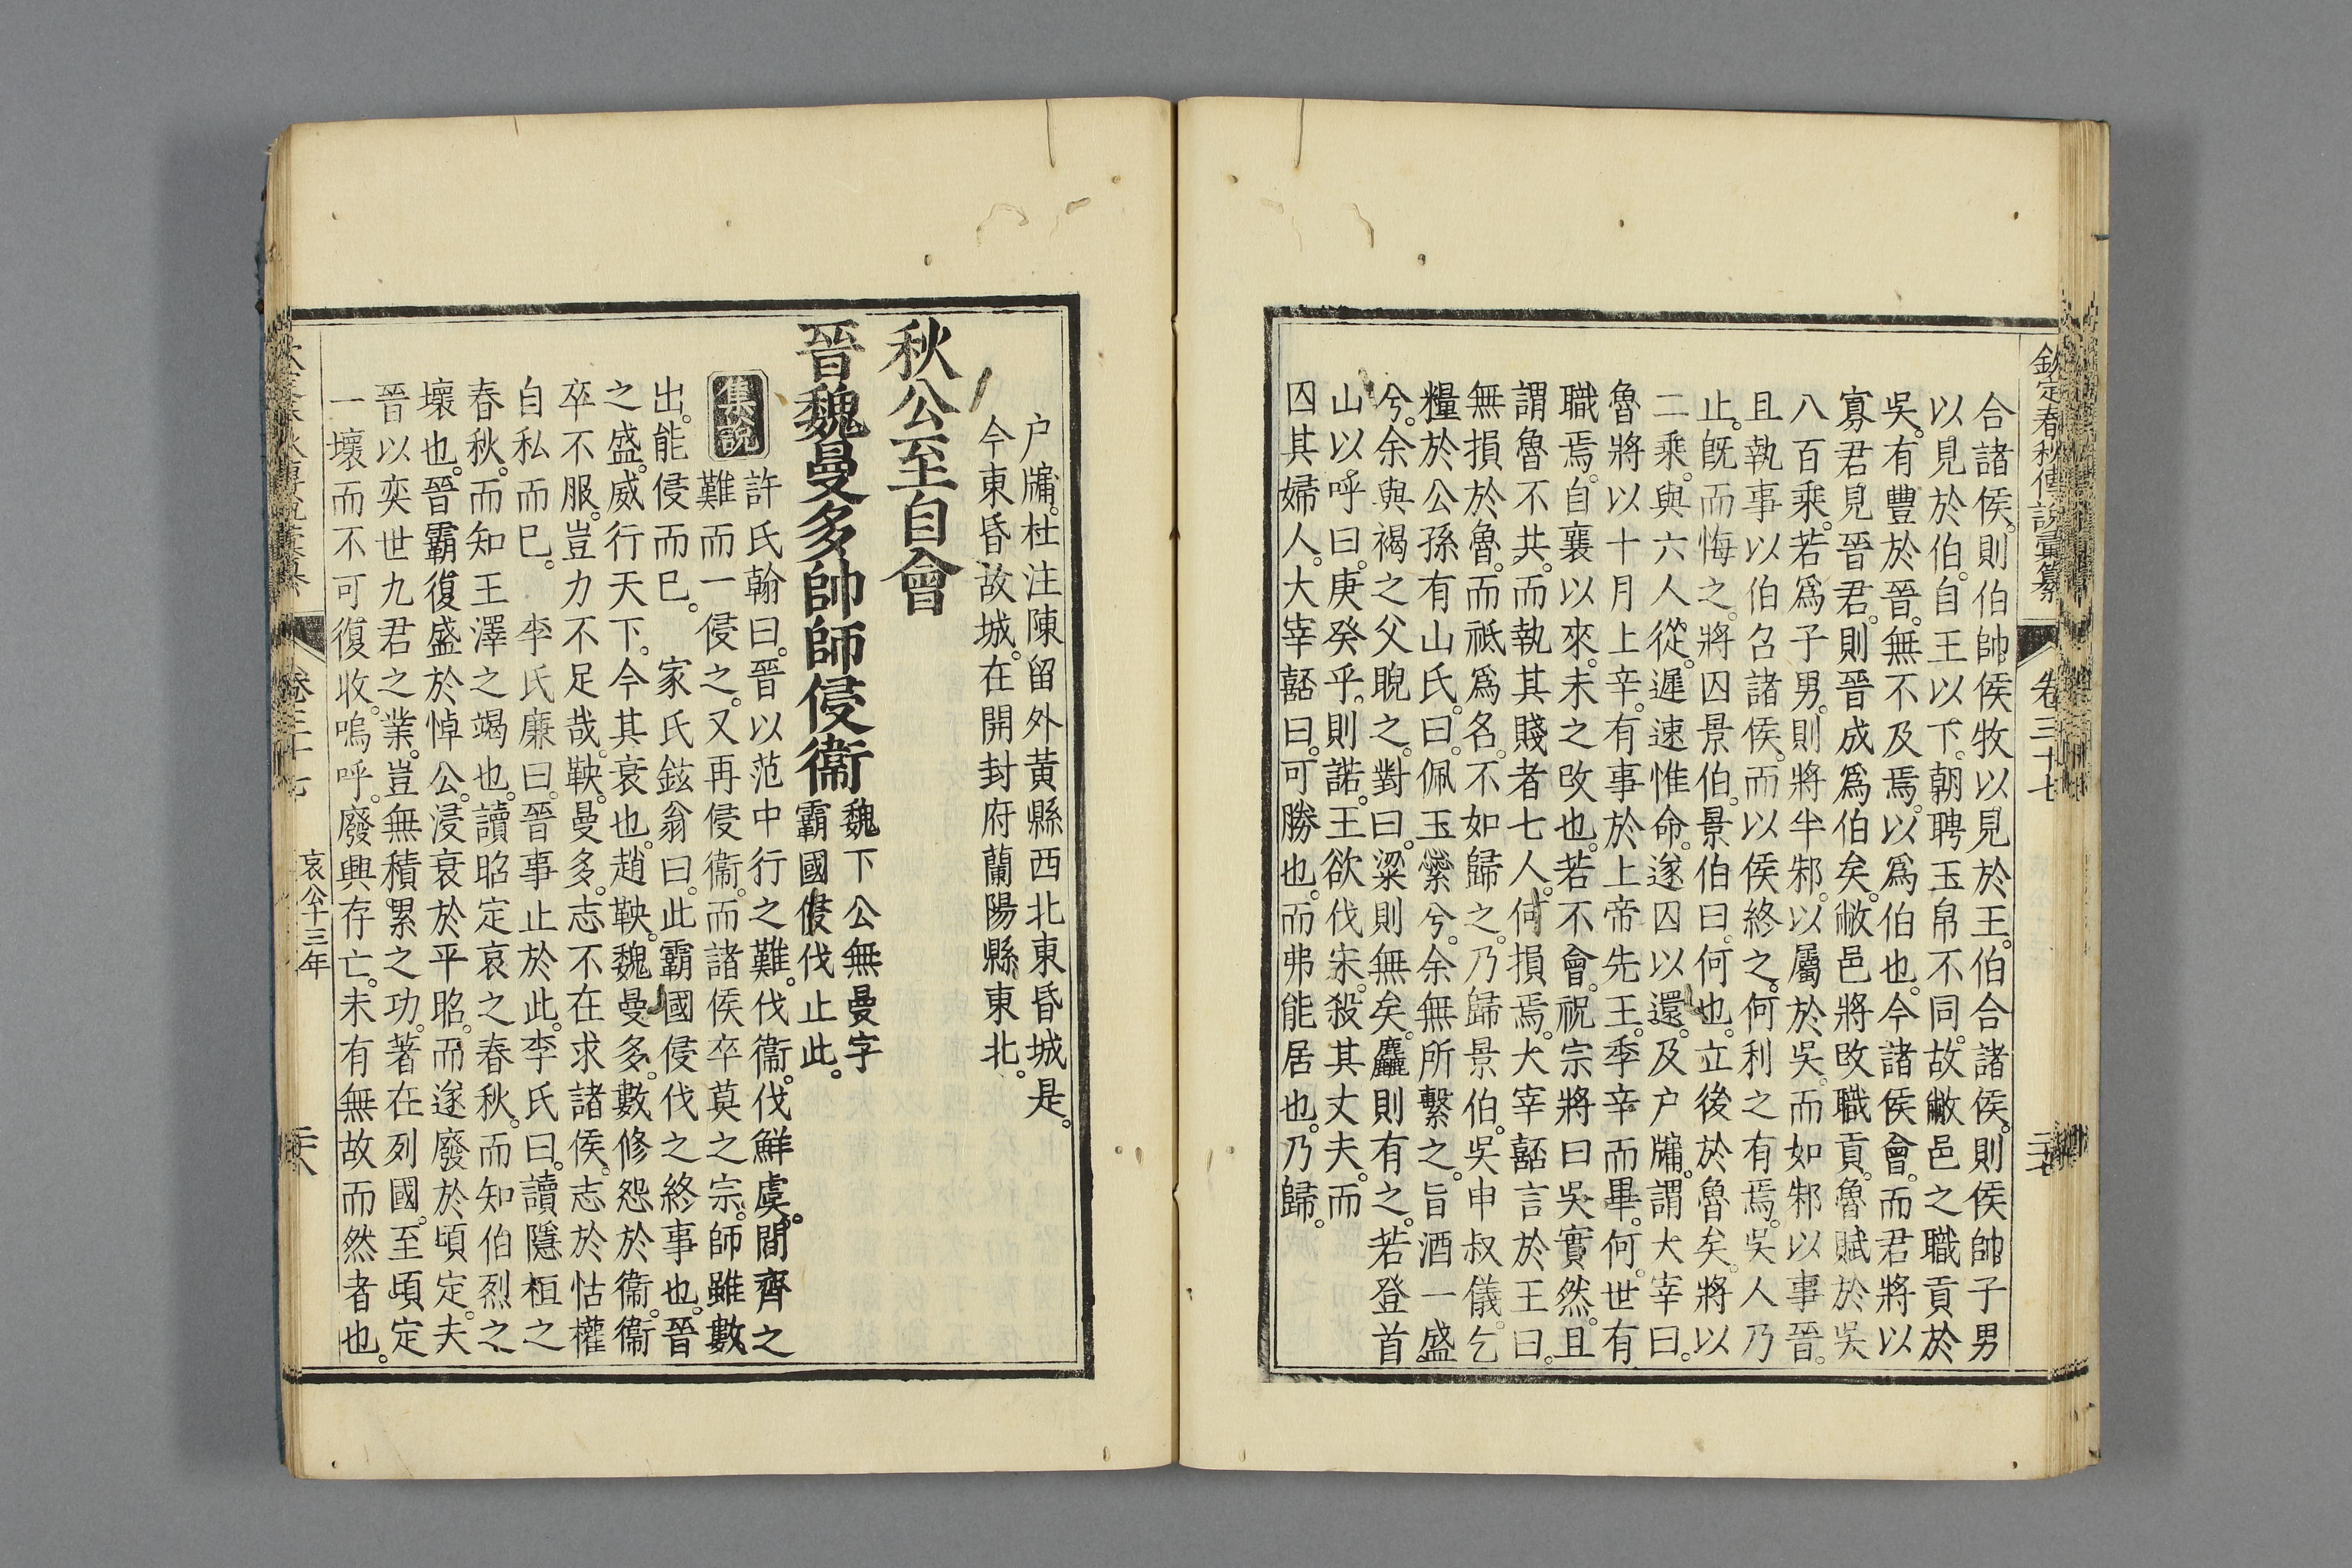 欽定春秋傳說彙纂 卷三十七 二十七
合諸侯。則伯帥侯牧以見於王。伯合諸侯。則侯帥子男
以見於伯。自王以下。朝聘玉帛不同。故敝邑之職貢於
吳。有豐於晉。無不及焉。以爲伯也。今諸侯會。而君將以
寡君見晉君。則晉成爲伯矣。敝邑將改職貢。魯賦於吳
八百乘。若爲子男。則將半邾。以屬於吳。而如邾以事晉。
且執事以伯召諸侯。而以侯終之。何利之有焉。吳人乃
止。旣而悔之。將囚景伯。景伯曰。何也。立後於魯矣。將以
二乘。與六人從。遲速惟命。遂囚以還。及户牖。謂大宰曰。
魯將以十月上辛。有事於上帝先王。季辛而畢。何。世有
職焉。自襄以來。未之改也。若不會。祝宗將曰吳實然。且
謂魯不共。而執其賤者七人。何損焉。大宰嚭言於王曰。
無損於魯。而祗爲名。不如歸之。乃歸景伯。吳申叔儀。乞
糧於公孫有山氏。曰。佩玉縈兮。余無所繫之。旨酒一盛
兮。余與褐之父睨之。對曰。粱則無矣。麤則有之。若登首
山以呼曰。庚癸乎。則諾。王欲伐宋。殺其丈夫。而
囚其婦人。大宰嚭曰。可勝也。而弗能居也。乃歸。
户牖。杜注陳留外黃縣西北東昏城是。
今東昏故城。在開封府蘭陽縣東北。
秋公至自會
晉魏曼多帥師侵衞
魏下公無曼字
霸國侵伐止此。
集說
許氏翰曰。晉以范中行之難。伐衞。伐鮮虞。間齊之
難而一侵之。又再侵衞。而諸侯卒莫之宗。師雖數
出。能侵而已。 家氏鉉翁曰。此霸國侵伐之終事也。晉
之盛。威行天下。今其衰也。趙鞅。魏曼多。數修怨於衞。衞
卒不服。豈力不足哉。鞅。曼多。志不在求諸侯。志於怙權
自私而已。 李氏廉曰。晉事止於此。李氏曰。讀隱桓之
春秋。而知王澤之竭也。讀昭定哀之春秋。而知伯烈之
壞也。晉霸復盛於悼公。浸衰於平昭。而遂廢於頃定。夫
晉以奕世九君之業。豈無積累之功。著在列國。至頃定
一壞而不可復收。嗚呼。廢興存亡。未有無故而然者也。
卷三十七 哀公十三年 二十八